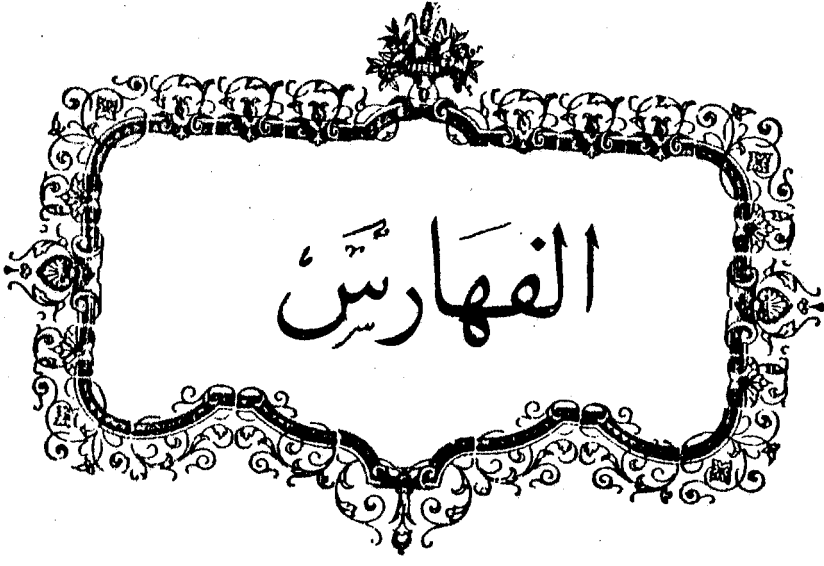 الفَهَارسُ